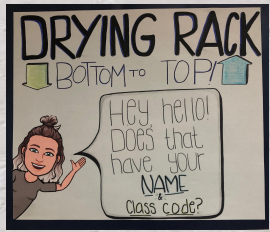 DRYING RACK
BOTTOM TO TOP!
Hey, hello!
Does that
have your
NAME
&
Class code?